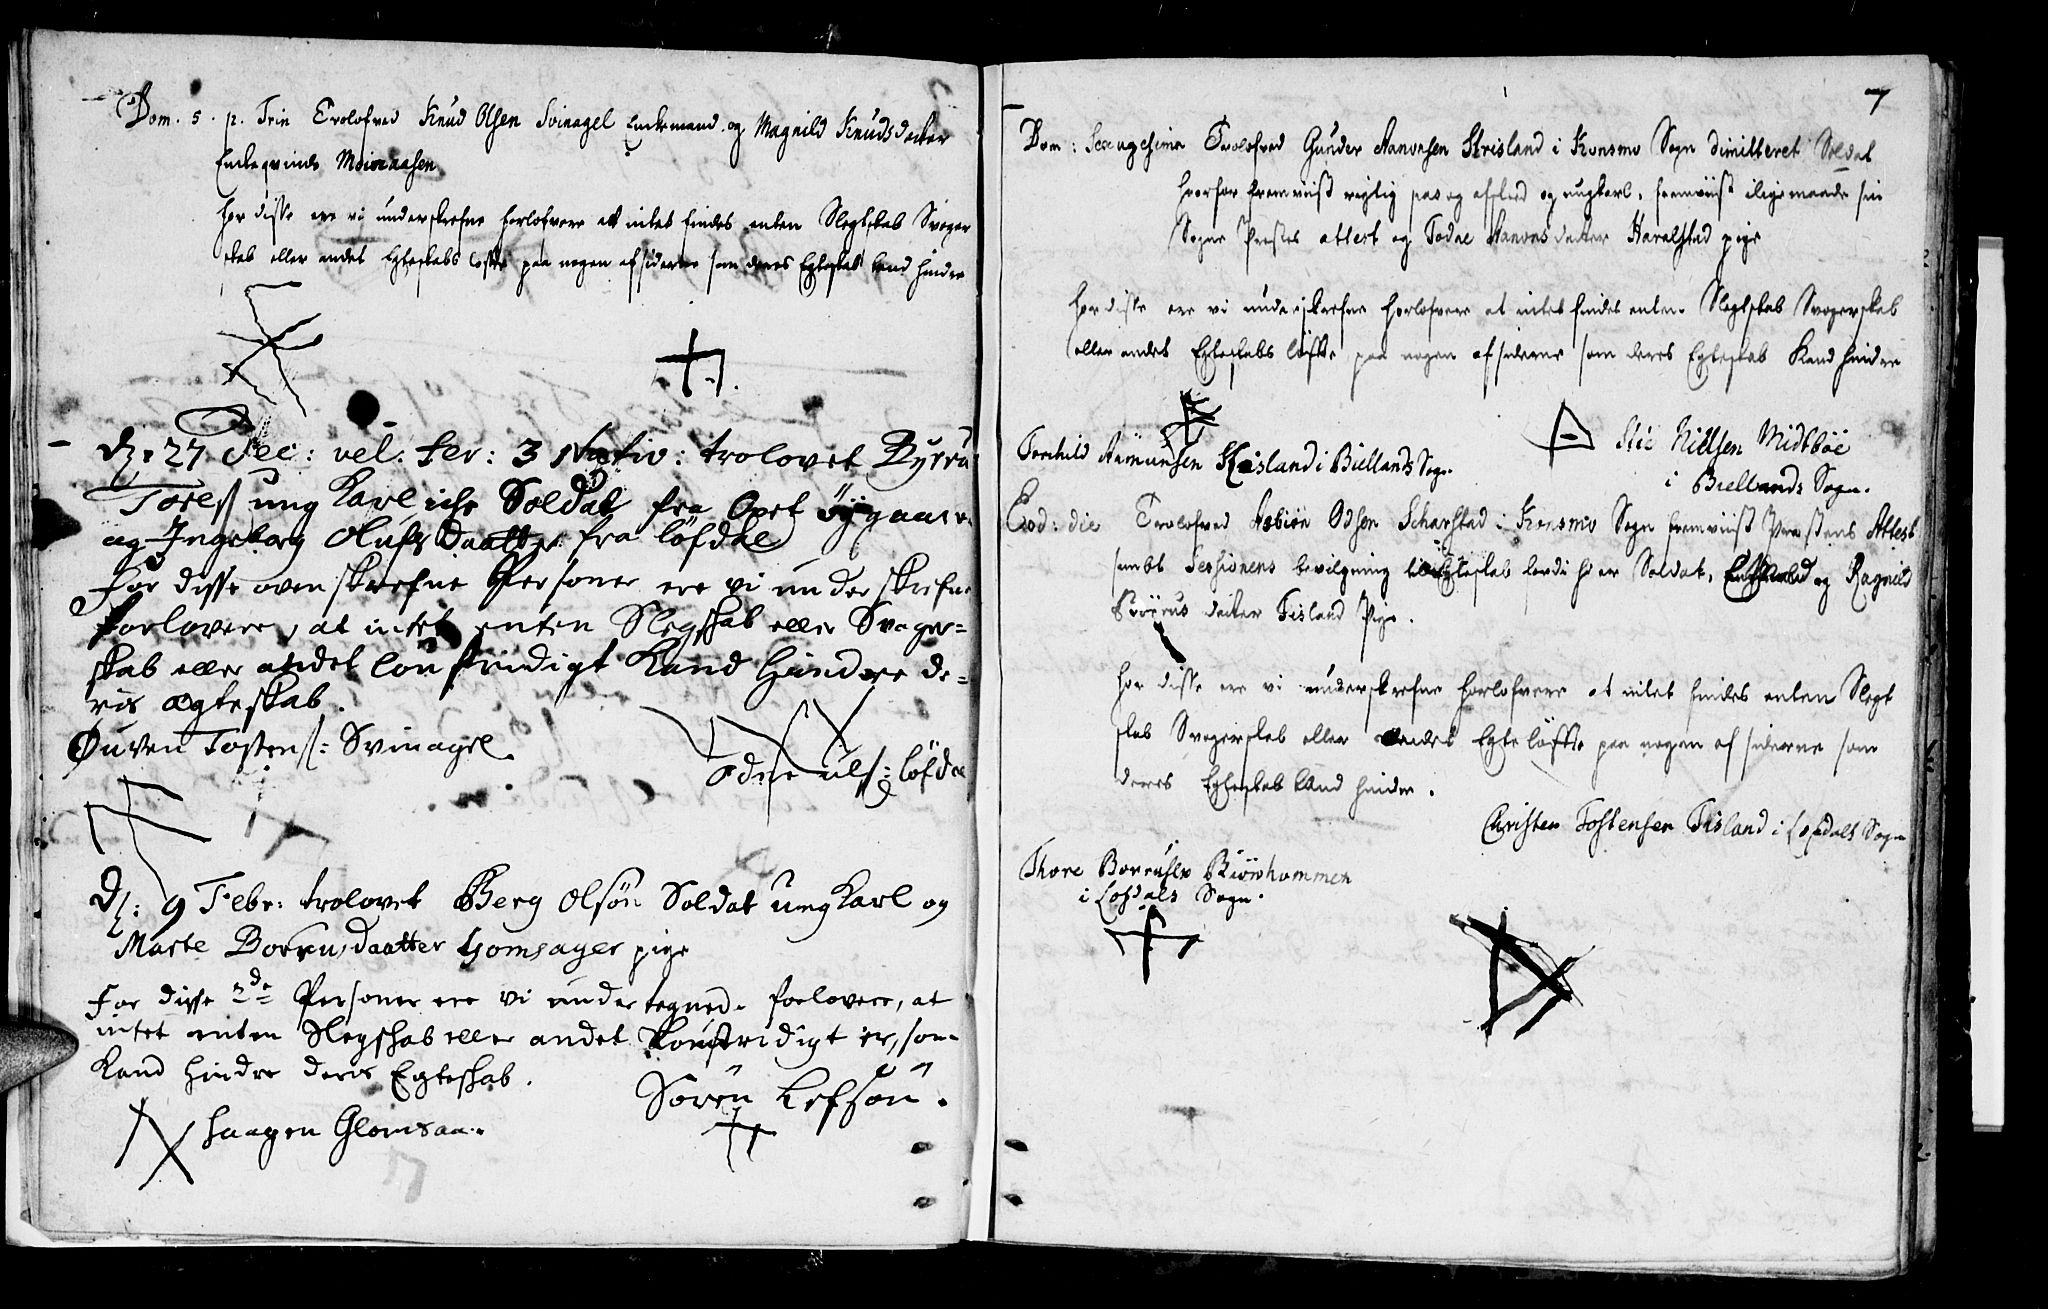 Dom. 5. p. Trin Trolofved Knud Olsen Svinagel Enckemand og Magnild Knudsdatter
Enckeqvinde Moseaasen
For disse ere vi underskrefne Forlofvere at intet findes enten Slegtskab Svoger
skab eller andet Egteskabs løffte paa nogen af siderne som deres Egteskab kand hindre
d. 27 Dec: vel. fer: 3 Nativ: trolovet Byrru
Tores ung Karl iche Soldat fra Opet Øygaar
og Ingeborg Olufs Daatter fra løfdal
For disse ovenskrefne Personer ere vi underskrefne
Forlovere, at intet enten Slegskab eller Svoger=
skab eller andet Konstridigt Kand Hindre de=
ris ægteskab.
Øuven Tostens: Svinagel
Odne Uls: løfdal
d: 9 Febr: trolovet Berg Olsøn Soldat ung Karl og
Marte Borrusdaatter Homsager pige
For disse 2de Personer ere vi undertegnede forlovere, at
intet enten Slegskab eller andet Konstridigt er, som
Kand Hindre deris Egteskab.
Søren Lefsøn.
Haagen Glomsaa
7
Dom: Sexagesima Trolofved Gunder Aanonsen Skrisland i Konsmo Sogn dimitteret Soldat
hvorfor fremviist rigtig pas og afskeed og ungkarl, fremviist iligemaade sin
Sogne Prestes attest og Todne Aanonsdatter Haralstad pige
For disse ere vi underskrefne Forlofvere at intet findes enten Slegtskab Svogerskab
eller andet Egteskabs løffte paa nogen af siderne som deres Egteskab Kand hindre
Torchild Aamunsen Skisland i Biellands Sogn
Stie Nielsen Midtbøe
i Biellands Sogn.
Eod: die Trolofved Asbiøn Odsen Scharstad i Konsmo Sogn fremviist Prestens Attest
sambt Sessionens bevilgning til Egteskab fordi hand er Soldat, og Ragnild
Børrus datter Fisland Pige.
For disse ere vi underskrefne Forlofvere at intet findes enten Slegt
skab Svogerskab eller andet Egte løffte paa nogen af siderne som
deres Egteskab kand hindre.
Christen Tostensen Fisland i Løfdals Sogn
Thore Borrusen Biørnhommen
i Løfdals Sogn.